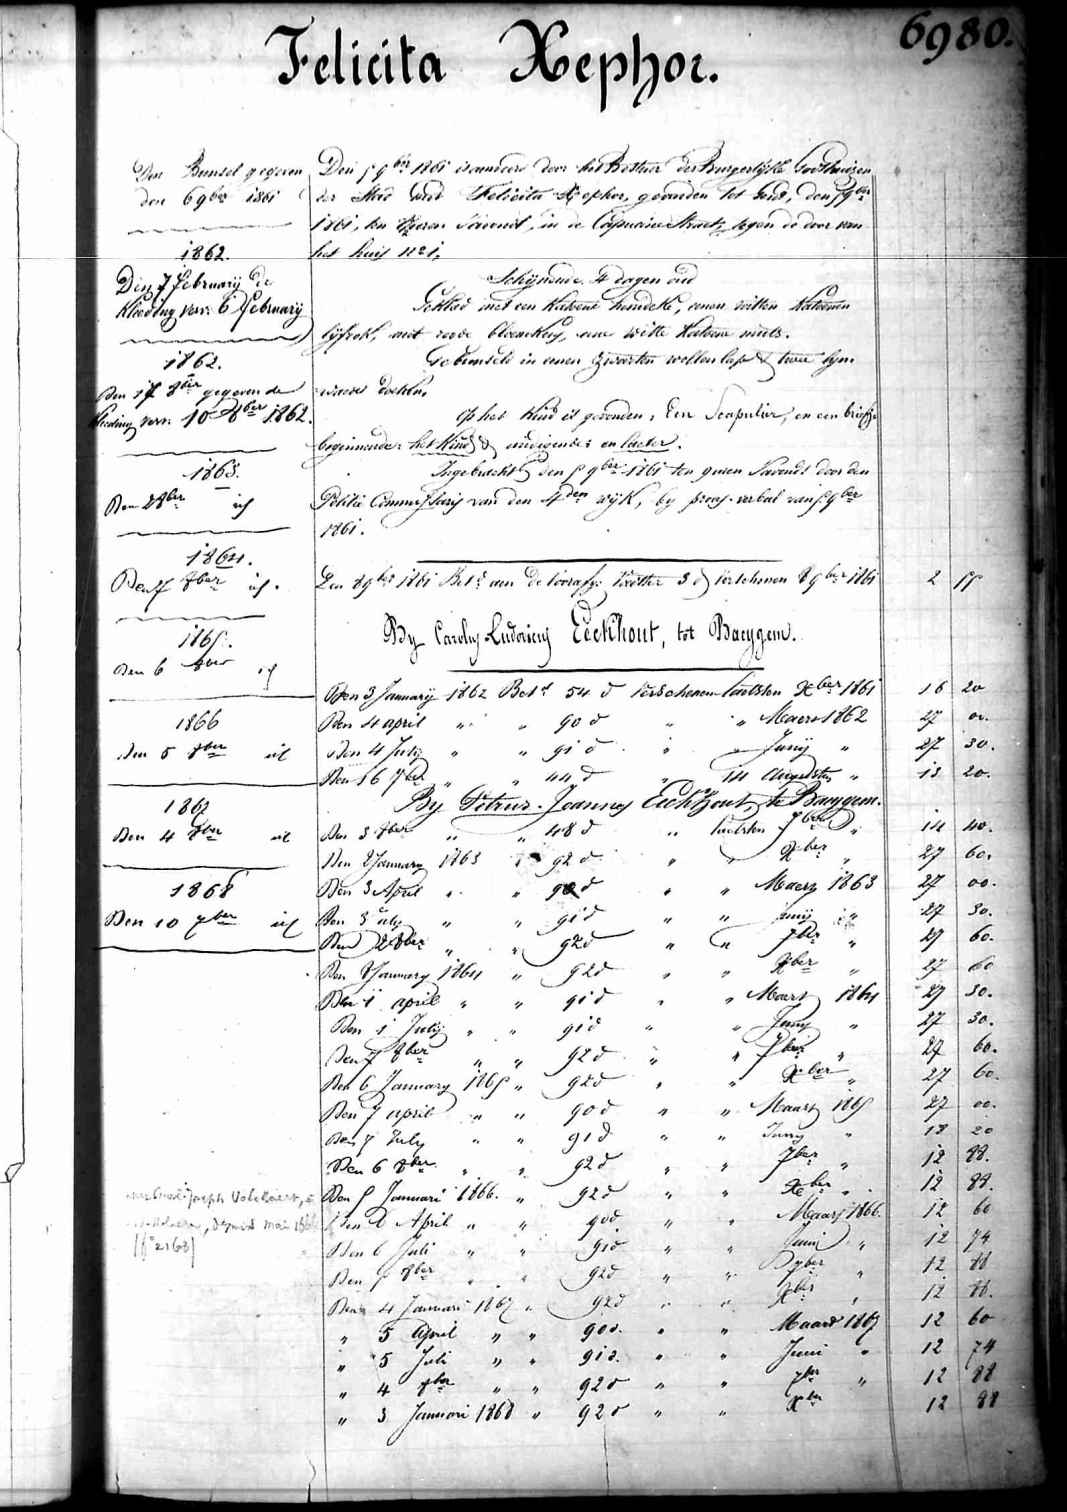 6980.
Felicita Xephor.
Den Bunsel gegeven
den 6 9ber 1861
1862.
Den 7 February de
Kleeding verv. 6 February
1862.
Den 17 8ber gegeven de
Kleeding verv. 10 8ber 1862.
1863.
Den 2 8ber id
1864.
Den 7 8ber id.
1865.
Den 6 8ber id
1866
den 5 8ber id
1867
Den 4 8ber id
1868
Den 10 7ber id
Den 5 9ber 1861 is door het Bestuer der Burgerlijke Godshuizen
der Stad Gend Felicita Xephor, gevonden tot Gend, den 5 9ber
1861, ten savonds, in de Capucine Straet, tegen de door van
het huis No 1,
Schijnende 4 dagen oud
Gekleed met een Katoene hemdeke, eenen witten Katoenen
lijfrok, met roode bloemkens, eene witte Katoene muts.
Gebunseld in eenen zwarten wollen lap & twee lijn
waede doeken,
Op het Kind is gevonden, Een Scapulier, en een briefje
beginnende: het Kind & eindigende: en later.
Ingebracht den 5 9ber 1861 ten savonds door den
Politie Commissaris van den 4den wijk, by proces-verbael van 5 9ber
1861.
Den 8 9ber 1861 Bet. aen de voorsz. 3 d verschenen 8 9ber 1861 2 55
By Carolus Ludovicus Eeckhout, tot Baeygem.
Den 3 January 1862 Bet. 54 d verschenen laetsten Xber 1861 16 20
Den 4 april " " 90 d " " Maert 1862 27 00.
Den 4 July " " 91 d " " Junij " 27 30.
Den 16 7ber " " 44 d " 14 Augusten " 13 20.
By Petrus-Joannes Eeckhout, te Baeygem.
Den 3 8ber " " 48 d " laetsten 7ber " 14 40.
Den 2 January 1863 " 92 d " " Xber " 27 60.
Den 3 April " " 90 d " " Maert 1863 27 00.
Den 3 July " " 91 d " " Junij " 27 30.
Den 2 8ber " " 92 d " " 7ber " 27 60.
Den 2 January 1864 " 92 d " " Xber " 27 60
Den 1 april " " 91 d " " Maert 1864 27 30.
Den 1 July " " 91 d " " Juny " 27 30.
Den 7 8ber " " 92 d " " 7ber " 27 60.
Den 6 January 1865 " 92 d " " Xber " 27 60.
Den 7 april " " 90 d " " Maart 1865 27 00.
Den 7 July " " 91 d " " Juny " 18 20
Den 6 8ber " " 92 d " " 7ber " 12 88.
Den 5 Januari 1866. " 92 d " " Xber " 12 88.
Den 6 April " " 90 d. " " Maart 1866. 12 60
Den 6 Juli " " 91 d " " Junij " 12 74
Den 5 8ber " " 92 d " " 7ber " 12 88
Den 4 Januari 1867 " 92 d " " Xber " 12 88.
" 5 April " " 90 d. " " Maart 1867 12 60
" 5 Juli " " 91 d. " " Juni " 12 74
" 4 8ber " " 92 d " " 7ber " 12 88
" 3 Januari 1868 " 92 d " " Xber 12 88
Joseph
depuis mai 1866
(fo 2168)